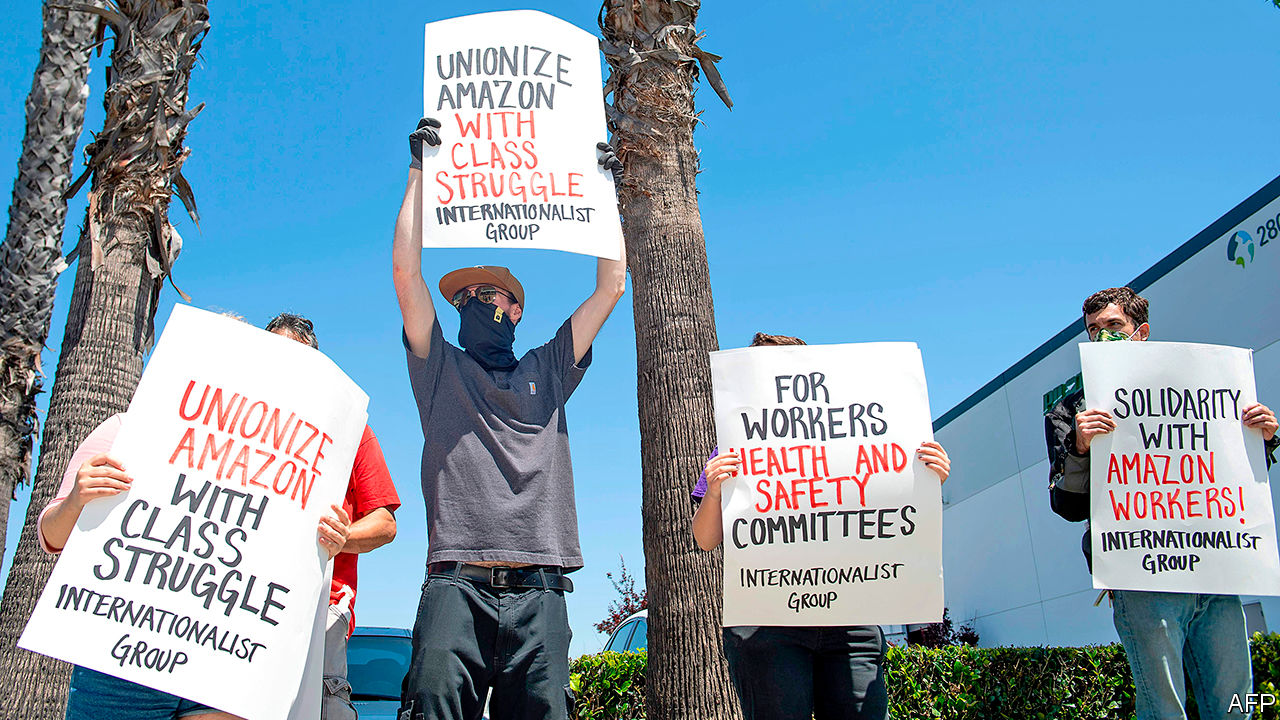 UNIONIZE
AMAZON
WITH
CLASS
STRUGGLE
INTERNATIONALIST
GROUP
UNIONIZE
AMAZON
WITH
CLASS
STRUGGLE
INTERNATIONALIST
GROUP
FOR
WORKERS
HEALTH AND
SAFETY
COMMITTEES
INTERNATIONALIST
GROUP
SOLIDARITY
WITH
AMAZON
WORKERS!
INTERNATIONALIST
GROUP
280
AFP